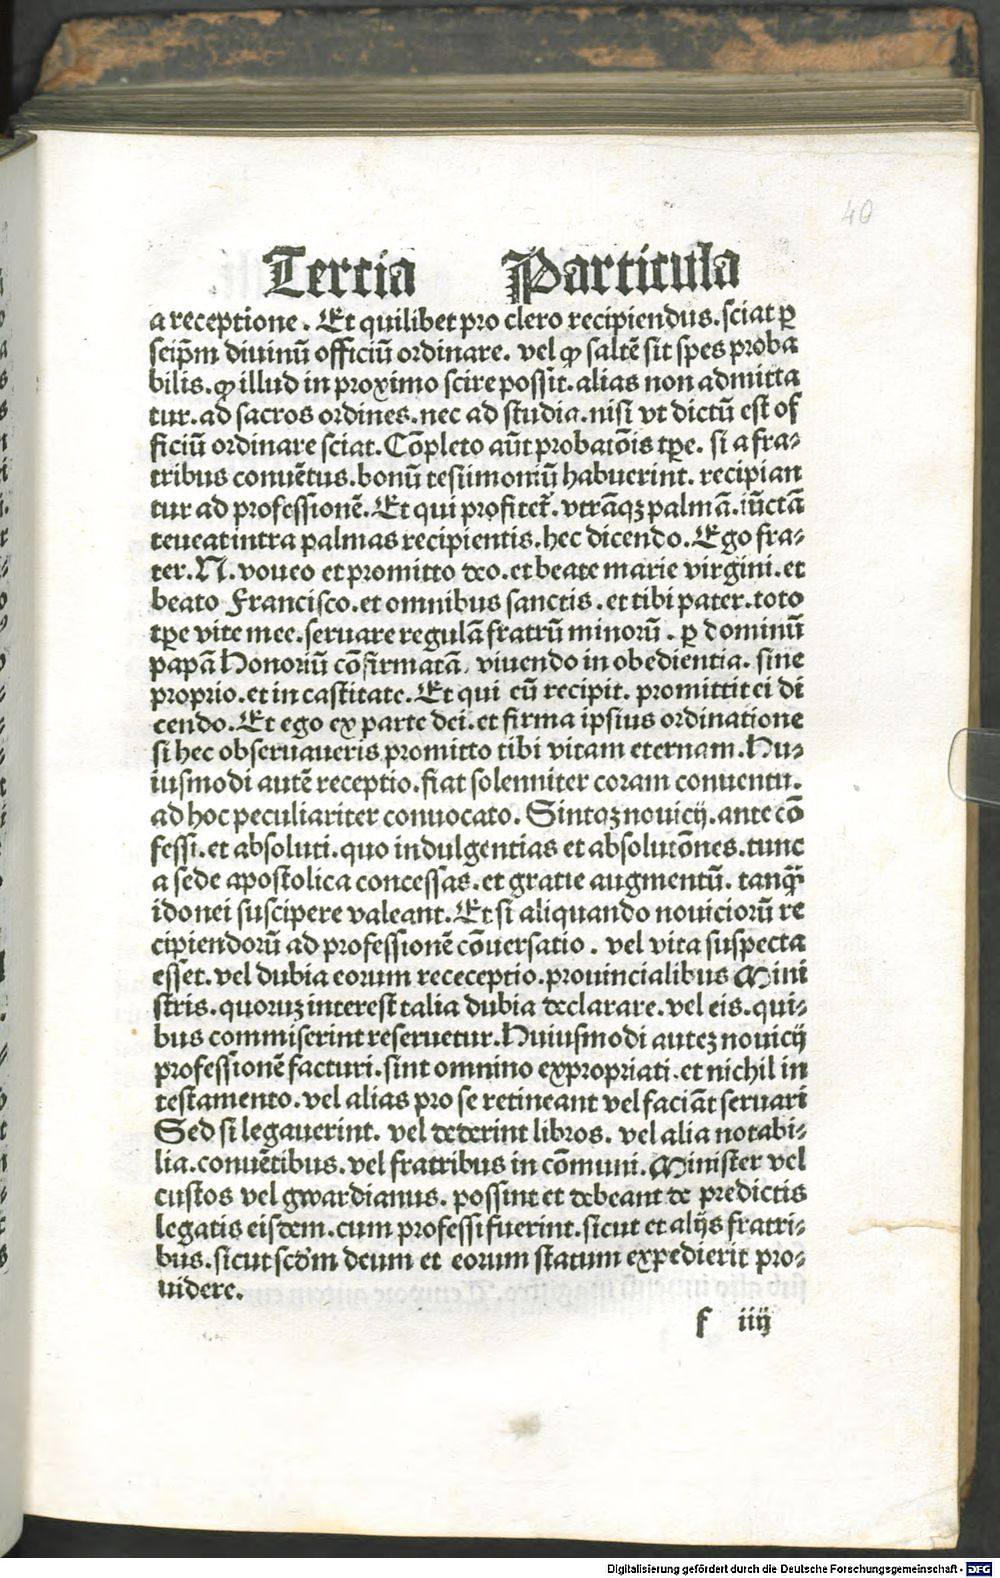 40
Tertia Particula
a receptione. Et quilibet pro clero recipiendus. sciat ꝑ
seip̄m diuinū officiū ordinare. vel ꝙ saltē sit spes proba
bilis. ꝙ illud in proximo scire possit. alias non admitta
tur. ad sacros ordines. nec ad studia. nisi vt dictū est of
ficiū ordinare sciat. Cōpleto aūt probatōis tꝑe. si a fra⸗
tribus conuētus. bonū tesiimoniū habuerint. recipian
tur ad professionē. Et qui profitet̃. vtrāqꝫ palmā. iūctā
teueat intra palmas recipientis. hec dicendo. Ego fra⸗
ter. N. voueo et promitto deo. et beate marie virgini. et
beato Francisco. et omnibus sanctis. et tibi pater. toto
tꝑe vite mee. seruare regulā fratrū minorū. ꝑ dominū
papā Honoriū cōfirmatā, viuendo in obedientia. sine
proprio. et in castitate. Et qui eū recipit. promittit ei di
cendo. Et ego ex parte dei. et firma ipsius ordinatione
si hec obseruaueris promitto tibi vitam eternam. Hu⸗
iusmodi autē receptio. fiat solenniter coram conuentu.
ad hoc peculiariter conuocato. Sintqꝫ nouicij. ante cō
fessi. et absoluti. quo indulgentias et absolutōnes. tunc
a sede apostolica concessas. et gratie augmentū. tanq̄ꝫ
idonei suscipere valeant. Et si aliquando nouiciorū re
cipiendorū ad professionē cōuersatio. vel vita suspecta
esset. vel dubia eorum receceptio. prouincialibus Mini
stris. quoruꝫ interest talia dubia declarare. vel eis. qui⸗
bus commiserint reseruetur. Huiusmodi auteꝫ nouicij
professionē facturi. sint omnino expropriati. et nichil in
testamento. vel alias pro se retineant vel faciāt seruari
Sed si legauerint. vel dederint libros. vel alia notabi⸗
lia. conuētibus. vel fratribus in cōmuni. Minister vel
custos vel gwardianus. possint et debeant de predictis
legatis eisdem. cum professi fuerint. sicut et alijs fratri⸗
bus. sicut scd̄m deum et eorum statum expedierit pro⸗
uidere.
f iiij
Digitalisierung gefördert durch die Deutsche Forschungsgemeinschaft - DFG